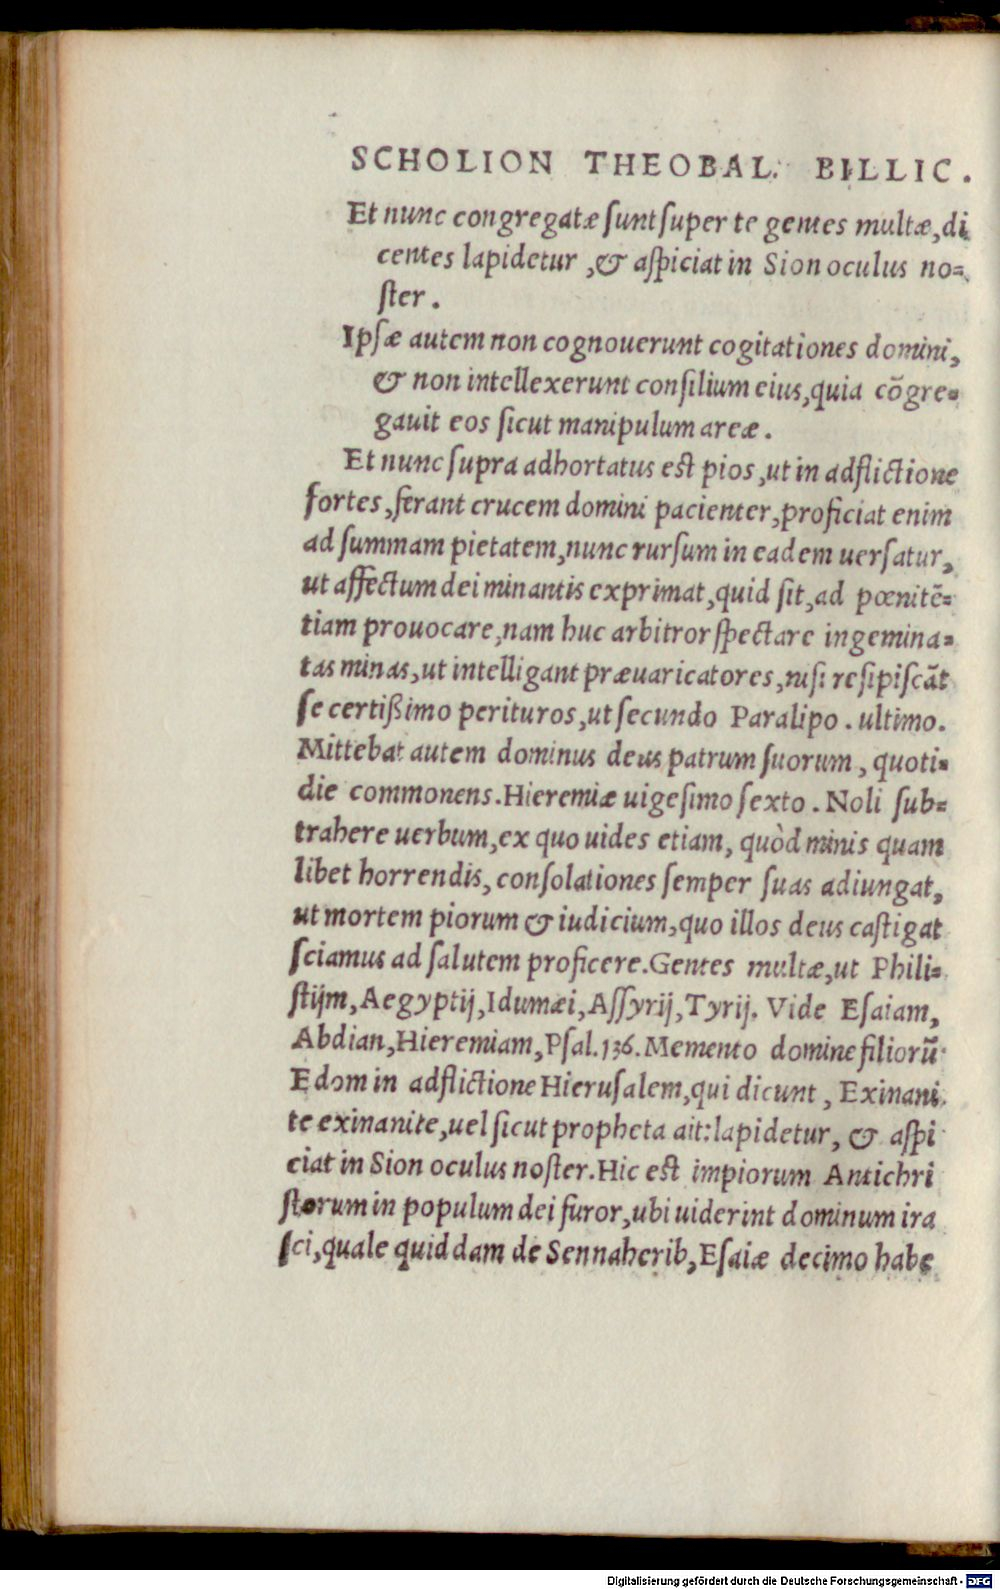 SCHOLION THEOBAL. BILLIC.
Et nunc congregatæ ſunt ſuper te gentes multæ, di
centes lapidetur, & aſpiciat in Sion oculus no-
ſter.
Ipſæ autem non cognouerunt cogitationes domini,
& non intellexerunt conſilium eius, quia cōgre-
gauit eos ſicut manipulum areæ.
Et nunc ſupra adhortatus eſt pios, ut in adflictione
fortes, ferant crucem domini pacienter, proficiat enim
ad ſummam pietatem, nunc rurſum in eadem uerſatur,
ut affectum dei minantis exprimat, quid ſit, ad pœnitē-
tiam prouocare, nam huc arbitror ſpectare ingemina-
tas minas, ut intelligant præuaricatores, niſi reſipiſcāt
ſe certißimo perituros, ut ſecundo Paralipo. ultimo.
Mittebat autem dominus deus patrum ſuorum, quoti-
die commonens. Hieremiæ uigeſimo ſexto. Noli ſub-
trahere uerbum, ex quo uides etiam, quòd minis quam
libet horrendis, conſolationes ſemper ſuas adiungat,
ut mortem piorum & iudicium, quo illos deus caſtigat
ſciamus ad ſalutem proficere. Gentes multæ, ut Phili-
ſtijm, Aegyptij, Idumæi, Aſſyrij, Tyrij. Vide Eſaiam,
Abdian, Hieremiam, Pſal. 136. Memento domine filiorū
Edom in adflictione Hieruſalem, qui dicunt, Exinani
te exinanite, uel ſicut propheta ait: lapidetur, & aſpi
ciat in Sion oculus noſter. Hic eſt impiorum Antichri
ſtorum in populum dei furor, ubi uiderint dominum ira
ſci, quale quiddam de Sennaherib, Eſaiæ decimo habe
Digitalisierung gefördert durch die Deutsche Forschungsgemeinschaft - DFG